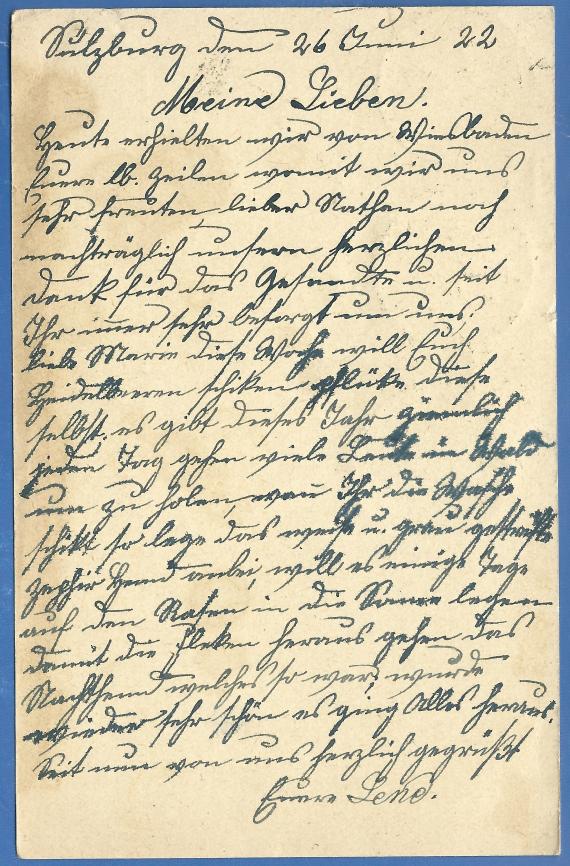 Sulzburg den 26 Juni 22
Meine Lieben.
Heute erhielten wir von Wiesbaden
Euere lb. Zeilen womit wir uns
sehr freuten, lieber Nathan noch
nachträglich unsern herzlichen
Dank für das Gesandte u. seit
Ihr imer sehr besorgt um uns.
liebe Marie diese Woche will Euch
Heidelbeeren schiken pflüke diese
selbst. es gibt dieses Jahr ziemlich
jeden Tag gehen viele Leute in Wald
um zu holen, wan Ihr die Wäsche
schikt so lege das weiß u. grau gestreifte
Zephir Hemd anbei, will es einige Tage
auf den Rasen in die Sonne legen
damit die Fleken heraus gehen das
Nachthemd welches so war, wurde
wieder sehr schön es ging Alles heraus.
Seit nun von uns herzlich gegrüßt
Euere